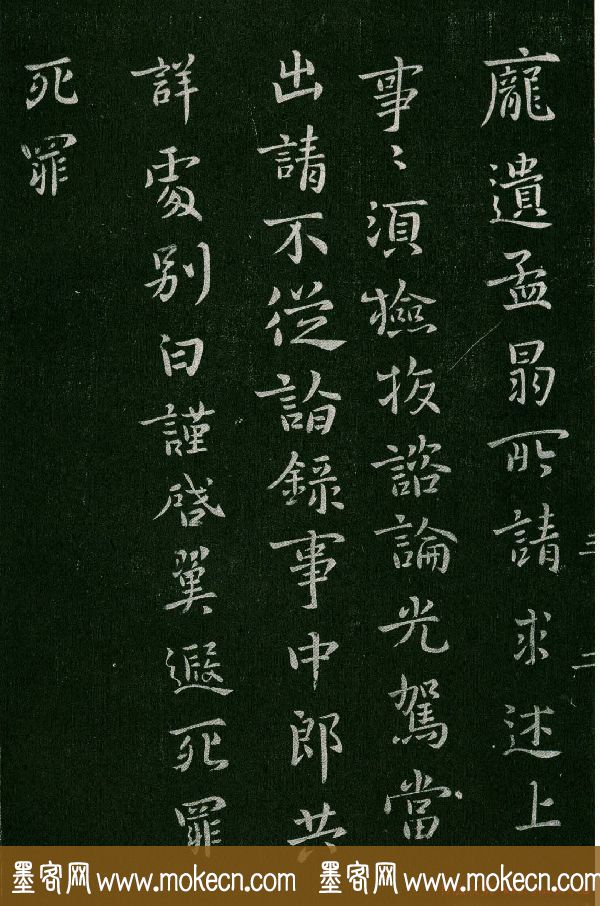 龐遺孟所請求述上
事〻須撿挍諮論光駕當
出請不從詣錄事中郎共
詳處別白謹啓翼遐死罪
死罪
墨客网 www.mokecn.com 墨客网 www.mokecn.com